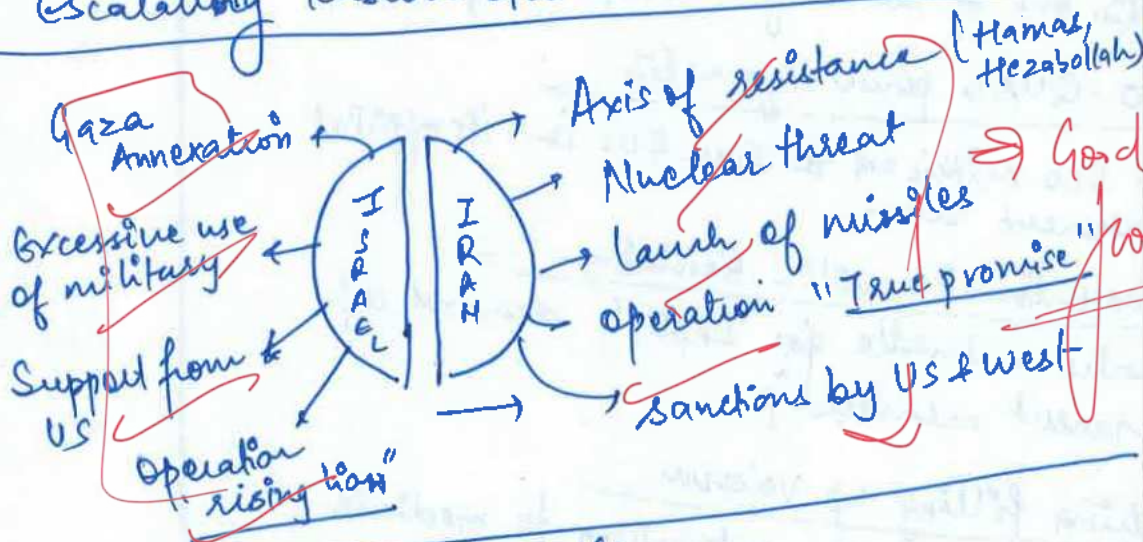 escalating
Gaza
Annexation
Excessive use
of military
Support from
US
Operation
"rising lion"
ISRAEL
IRAN
Axis of resistance (Hamas,
Hezabollah)
Nuclear threat
launch of missiles
operation "True promise"
sanctions by US & West
Good